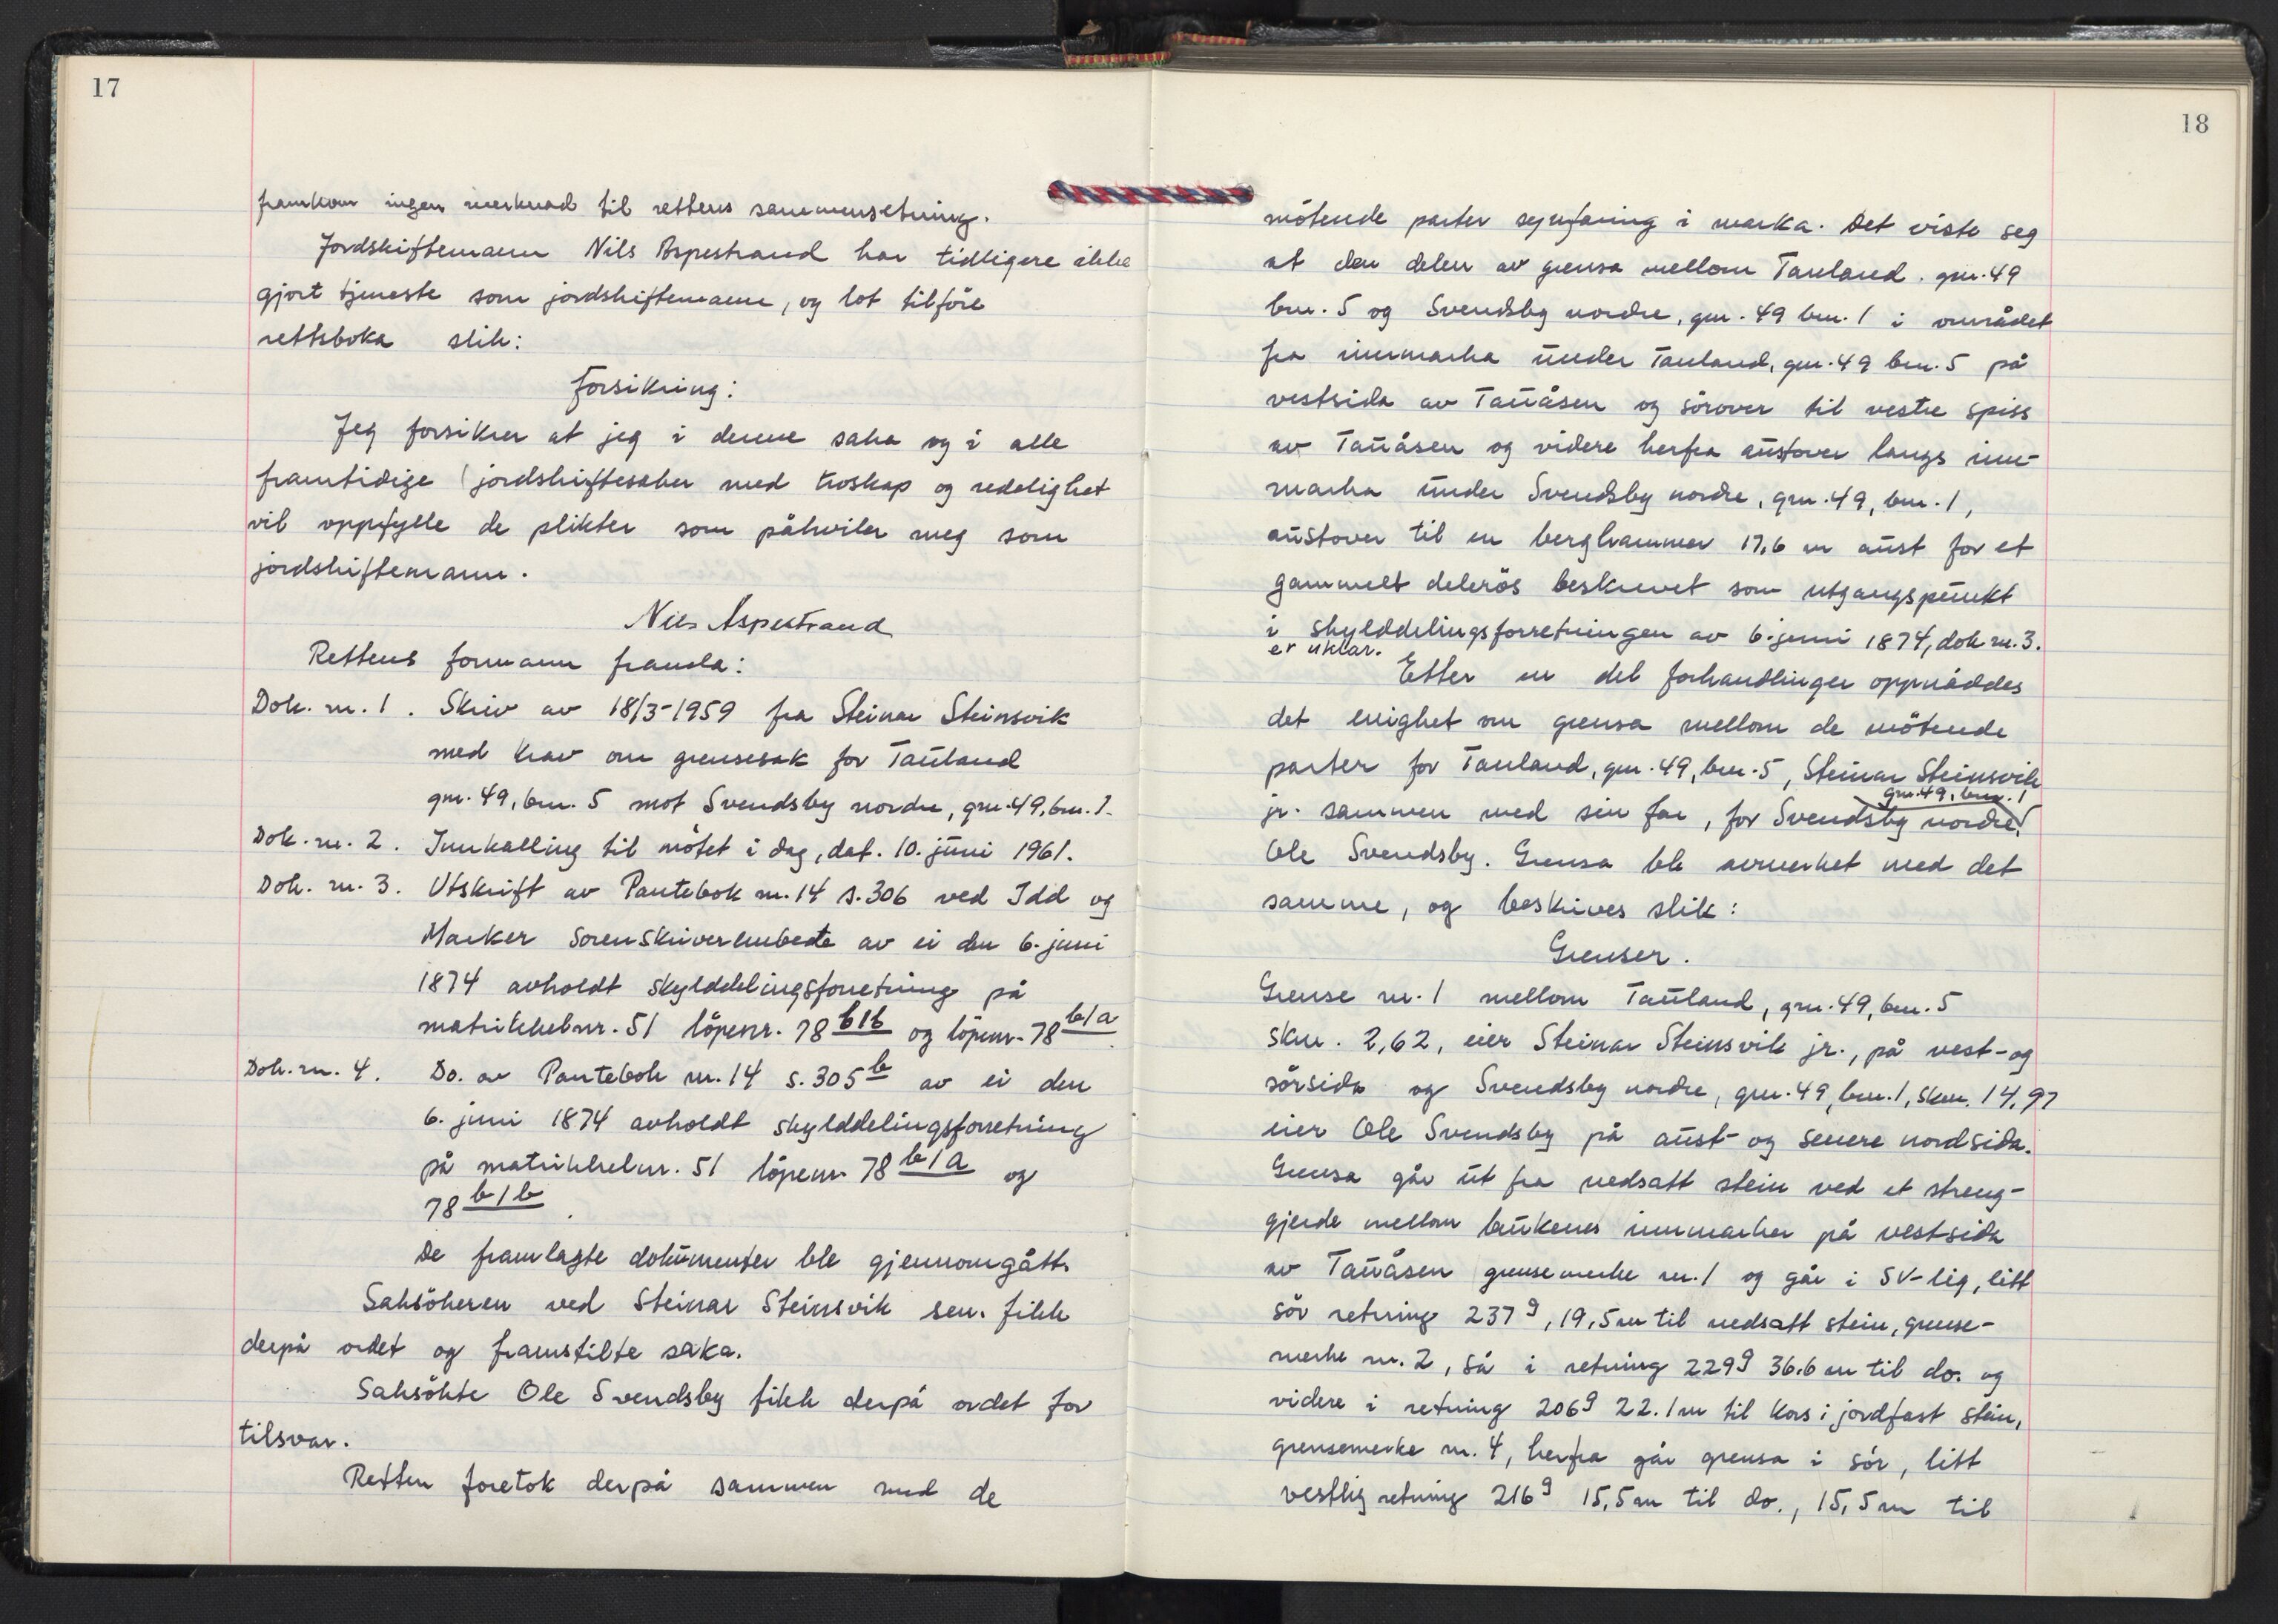 17
framkom ingen merknad til rettens sammensetning.
Jordskiftemann Nils Aspestrand har tidligere ikke
gjort tjeneste som jordskiftemann, og lot tilføre
rettsboka slik:
Forsikring:
Jeg forsikrer at jeg i denne saka og i alle
framtidige jordskiftesaker med troskap og redelighet
vil oppfylle de plikter som påhviler meg som
jordskiftemann.
Nils Aspestrand
Rettens formann framla:
Dok. nr. 1. Skriv av 18/3-1959 fra Steinar Steinsvik
med krav om grensesak for Tauland
gnr. 49, bnr. 5 mot Svendsby nordre, gnr. 49, bnr. 1.
Dok. nr. 2. Innkalling til møtet i dag, dat. 10. juni 1961.
Dok. nr. 3. Utskrift av Pantebok nr. 14 s. 306 ved Idd og
Marker sorenskriverembete av ei den 6. juni
1874 avholdt skylddelingsforretning på
matrikkelnr. 51 løpenr. 78 b1b og løpenr. 78 b1a.
Dok. nr. 4. Do. av Pantebok nr. 14 s. 305 b av ei den
6. juni 1874 avholdt skylddelingsforretning
på matrikkelnr. 51 løpenr. 78 b1a og
78 b1b.
De framlagte dokumenter ble gjennomgått.
Saksøkeren ved Steinar Steinsvik sen. fikk
derpå ordet og framstilte saka.
Saksøkte Ole Svendsby fikk derpå ordet for
tilsvar.
Retten foretok derpå sammen med de
18
møtende parter synfaring i marka. Det viste seg
at den delen av grensa mellom Tauland. gnr. 49
bnr. 5 og Svendsby nordre, gnr. 49 bnr. 1 i området
fra innmarka under Tauland, gnr. 49 bnr. 5 på
vestsida av Tauåsen og sørover til vestre spiss
av Tauåsen og videre herfra austover langs inn-
marka under Svendsby nordre, gnr. 49, bnr. 1,
austover til en berghammer 17,6 m aust for et
gammelt delerøs beskrevet som utgangspunkt
i skylddelingsforretningen av 6. juni 1874, dok nr. 3.
er uklar.
Etter en del forhandlinger oppnåddes
det enighet om grensa mellom de møtende
parter for Tauland, gnr. 49, bnr. 5, Steinar Steinsvik
gnr. 49, bnr. 1
jr. sammen med sin far, for Svendsby nordre,
Ole Svendsby. Grensa ble avmerket med det
samme, og beskrives slik:
Grenser.
Grense nr. 1 mellom Tauland, gnr. 49, bnr. 5
skm. 2,62, eier Steinar Steinsvik jr., på vest- og
sørsida og Svendsby nordre, gnr. 49, bnr. 1, skm. 14,97
eier Ole Svendsby på aust- og senere nordsida.
Grensa går ut fra nedsatt stein ved et streng-
gjerde mellom brukenes innmarker på vestsida
av Tauåsen grensemerke nr. 1 og går i SV-lig, litt
sør retning 237 g, 19,5 m til nedsatt stein, grense-
merke nr. 2, så i retning 229 g 36.6 m til do. og
videre i retning 206 g 22.1 m til kors i jordfast stein,
grensemerke nr. 4, herfra går grensa i sør, litt
vestlig retning 216 g 15,5 m til do., 15,5 m til